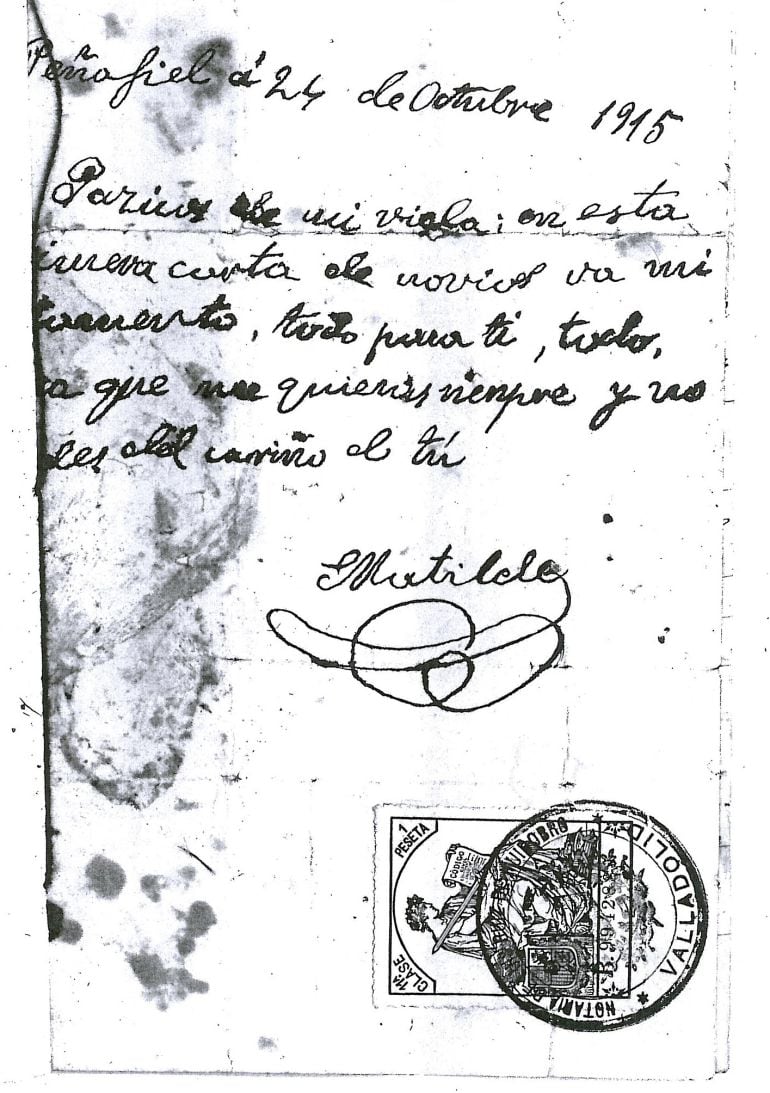 Peñafiel á 24 de Octubre 1915
de mi vida: en esta
imera carta de novios va mi
tamento, todo para ti, todo,
a que me quieras siempre y no
des del cariño de tú
Matilde
1 PESETA
CÓDIGO
11ª CLASE
NOTARIA
VALLADOLID